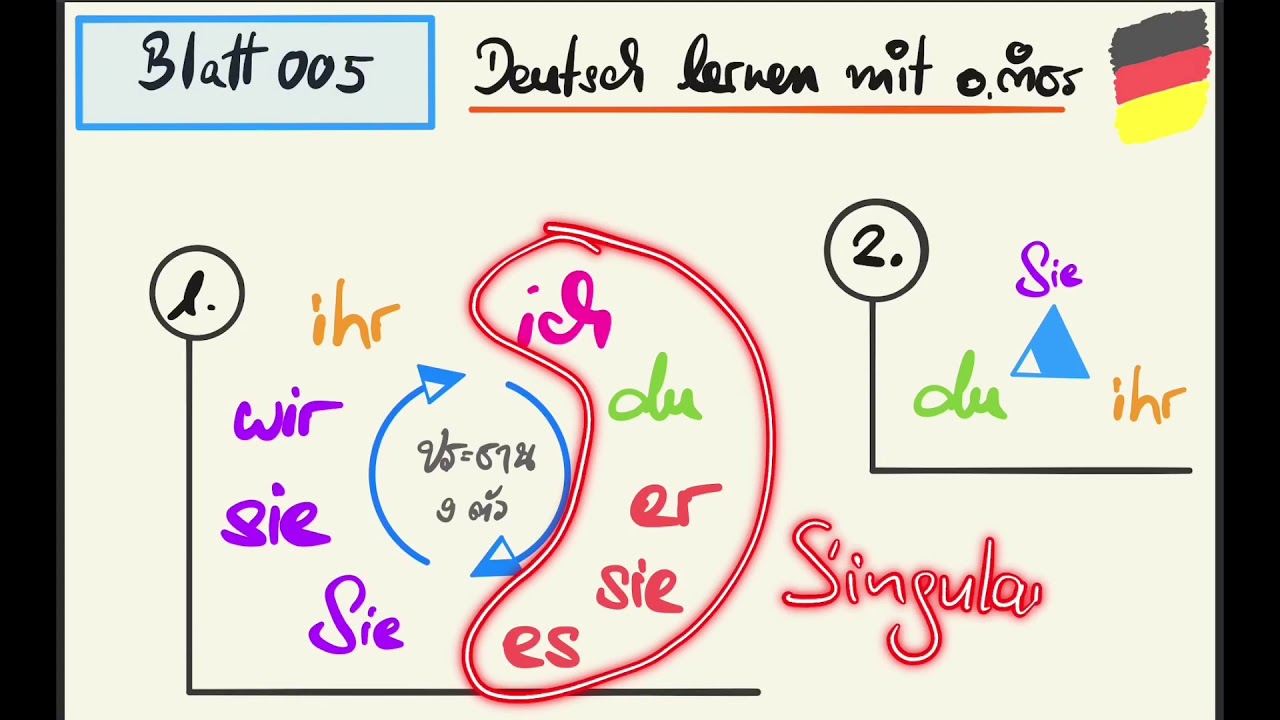 Blatt 005
Deutsch lernen mit อ.หมิอร
1.
ihr
ich
wir
du
sie
er
Sie
sie
es
ประธาน
9 ตัว
2.
Sie
du
ihr
Singula